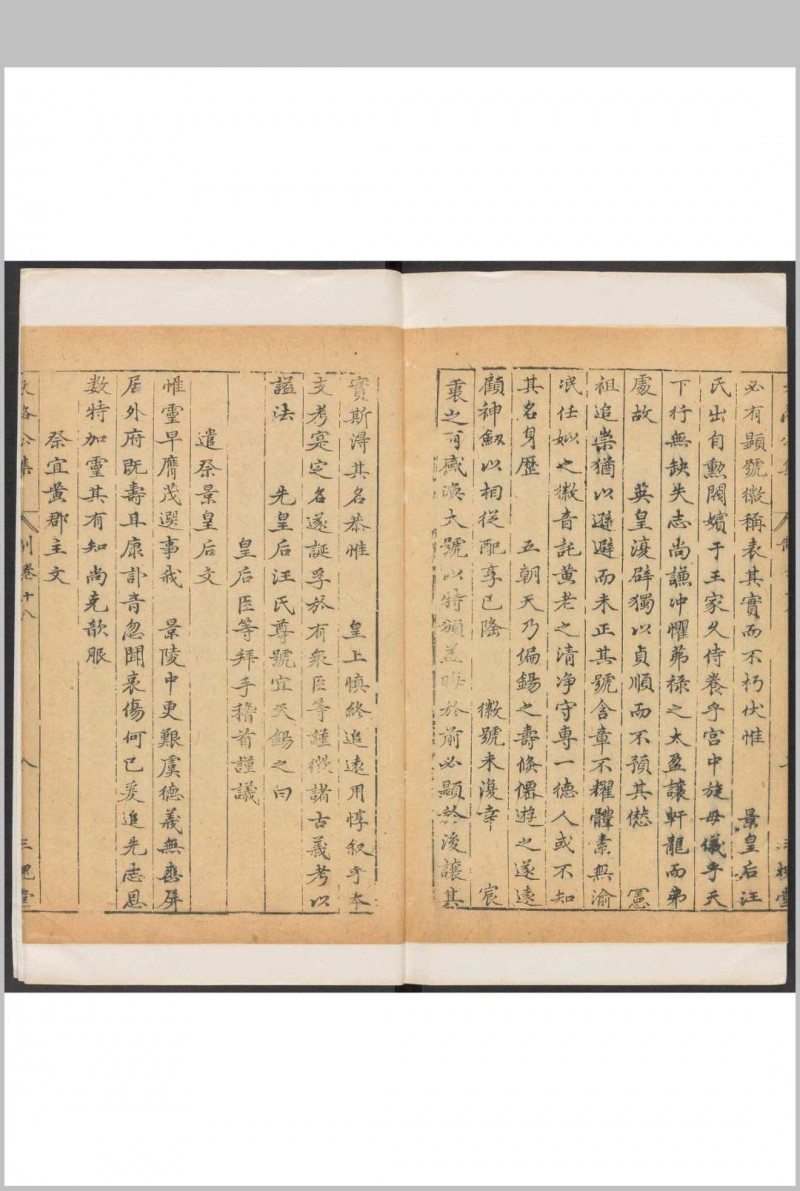 必有顯號徽稱表其實而不朽伏惟　景皇后汪
氏出自勲閥嬪于王家久侍養乎宫中旋母儀乎天
下行無缺失志尚謙冲懼茀祿之太盈讓軒龍而弗
處故　英皇復辟獨以貞順而不預其愆　憲
祖追崇猶以遜避而未正其號含章不耀體素無渝
泯任姒之徽音託黄老之清净守專一德人或不知
其名身歴　五朝天乃偏錫之壽倏僊遊之遂遠
顧神劔以相從配享已隆　徽號未復幸　宸
衷之有感渙大號以特頒盖 於前必顯於後讓其
實斯淂其名恭惟　皇上慎終追遠用惇叙乎本
支考寔定名遂誕孚於有衆臣等謹徴諸古義考以
謚法　先皇后汪氏尊號宜天錫之曰
皇后臣等拜手稽首謹議
遣祭景皇后文
惟靈早膺茂選事我　景陵中更艱虞德義無 屏
居外府既壽且康訃音忽聞哀傷何已爰追先志恩
数特加靈其有知尚克歆服
祭宜黄郡主文
别卷十八
八
三槐堂